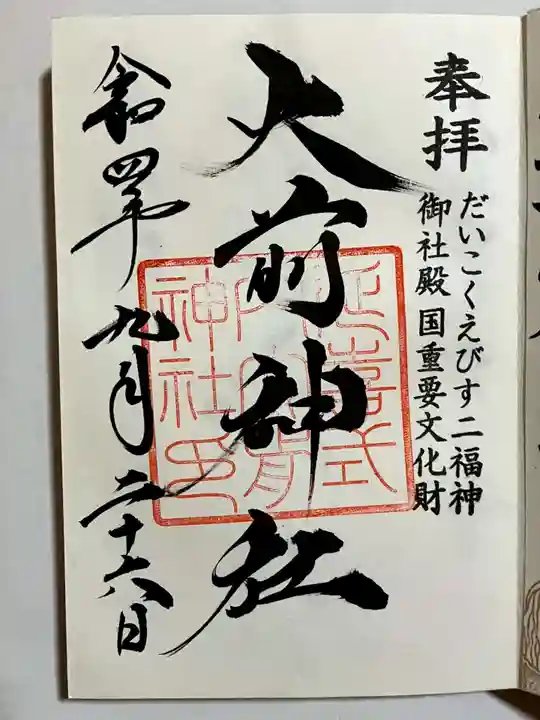 奉拝
だいこくえびす二福神
御社殿国重要文化財
大前神社
延喜式
内大前
神社印
令和四年九月二十六日